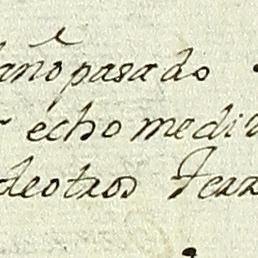 año pasado
echo medi
deotros Terr